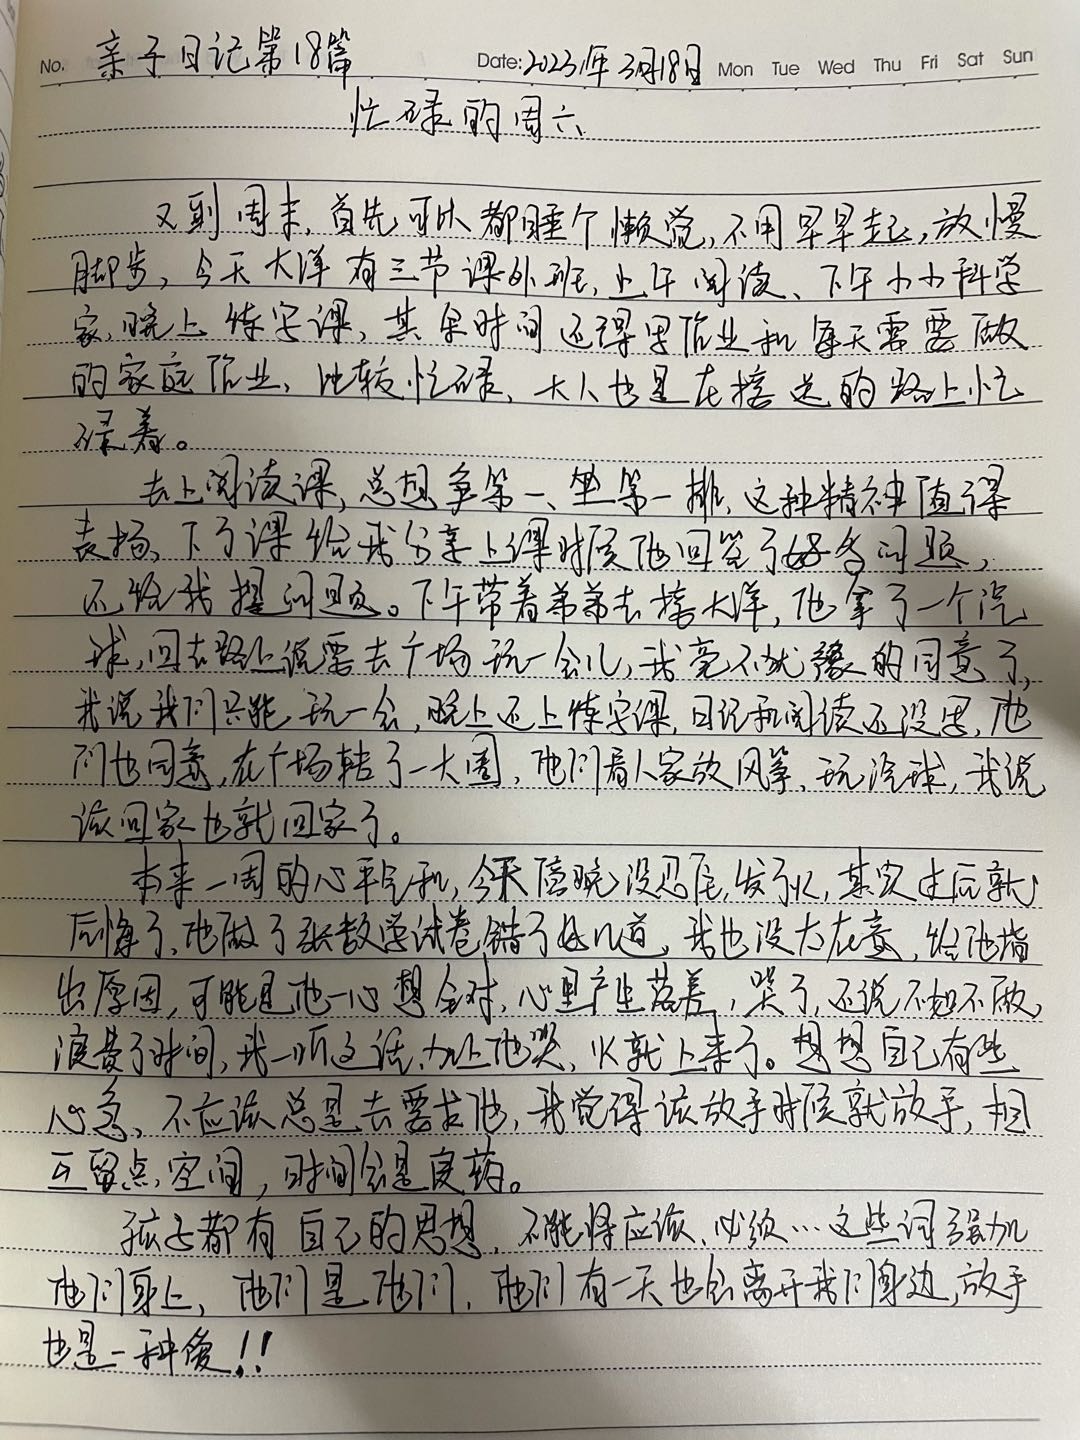 No. 亲子日记第18篇 Date: 2023年3月18日 Mon Tue Wed Thu Fri Sat Sun
忙碌的周六
又到周末,首先可以都睡个懒觉,不用早早起,放慢
脚步,今天大洋有三节课外班,上午阅读、下午小小科学
家,晚上练字课,其余时间还得写作业和每天需要做
的家庭作业,比较忙碌,大人也是在接送的路上忙
碌着。
去上阅读课,总想争第一、坐第一排,这种精神值得
表扬,下了课给我分享上课时候他回答了好多问题,
还给我提问题。下午带着弟弟去接大洋,他拿了一个汽
球,回去路上说要去广场玩一会儿,我毫不犹豫的同意了,
我说我们只能玩一会,晚上还上练字课,日记和阅读还没写,他
们也同意,在广场转了一大圈,他们看人家放风筝,玩汽球,我说
该回家也就回家了。
本来一周的心平气和,今天傍晚没忍住,发了火,其实过后就
后悔了,他做了张数学试卷错了好几道,我也没太在意,给他指
出原因,可能是他一心想全对,心里产生落差,哭了,还说不如不做,
浪费了时间,我一听这话,加上他哭,火就上来了。想想自己有些
心急,不应该总是去要求他,我觉得该放手时候就放手,相
互留点空间,时间会是良药。
孩子都有自己的思想,不能将应该、必须…这些词强加
他们身上,他们是他们,他们有一天也会离开我们身边,放手
也是一种爱!!